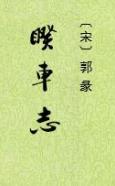 〔宋〕郭彖
睽車志